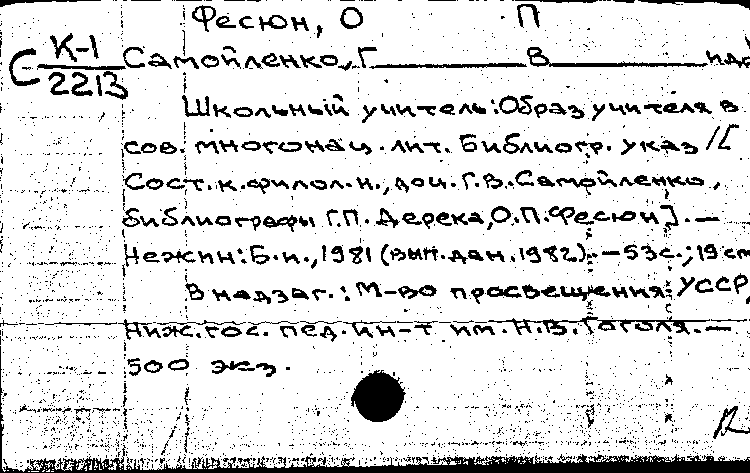 Фесюн, О П
С К-1 Самойленко, Г В и др
2213
Школьный учитель: Образ учителя в
сов. многонац. лит. Библиогр. указ /[
Сост. к.филол.н., доц. Г.В.Самойленко,
библиографы Г.П.Дерека, О.П.Фесюн]. —
Нежин: Б.и., 1981 (вып.дан. 1982). — 53с.; 19 см
В надзаг.: М-во просвещения УССР,
Ниж.гос. пед. ин-т им. Н.В.Гоголя. —
500 экз.